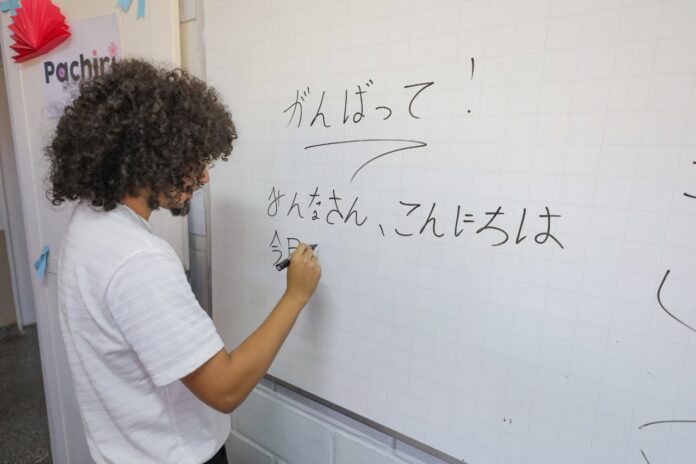 Pachir
がんばって！
みんなさん、こんにちは
今日